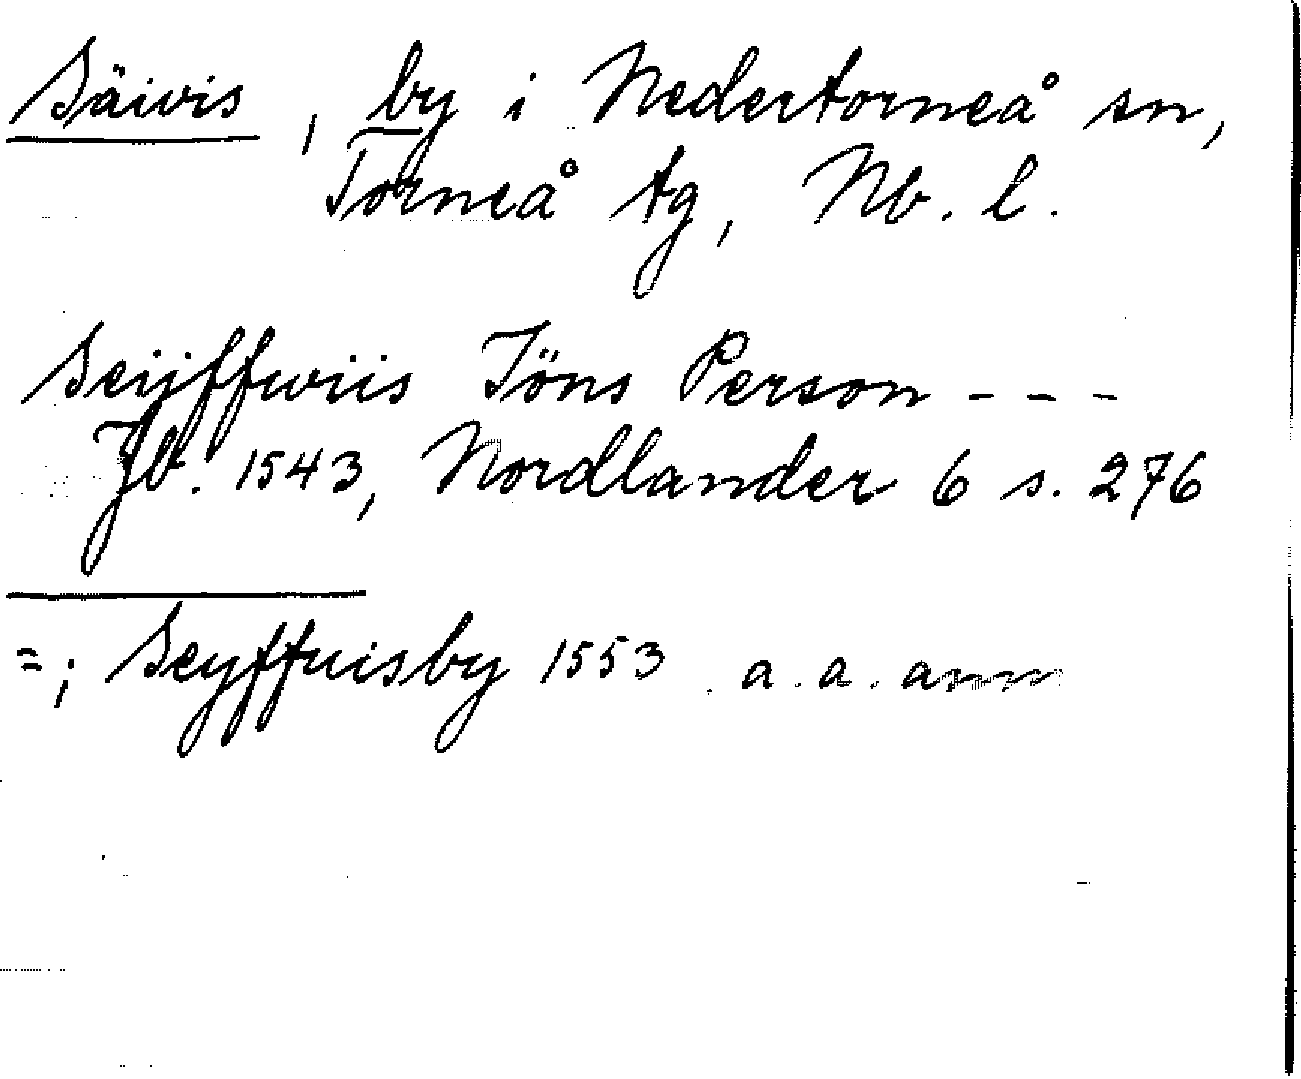 Säivis, by i Nedertorneå sn,
Torneå tg, Nb. l.
Seijffwiis Jöns Person - - -
Jb. 1543, Nordlander 6 s. 276
=; Seyffuisby 1553 a. a. anm